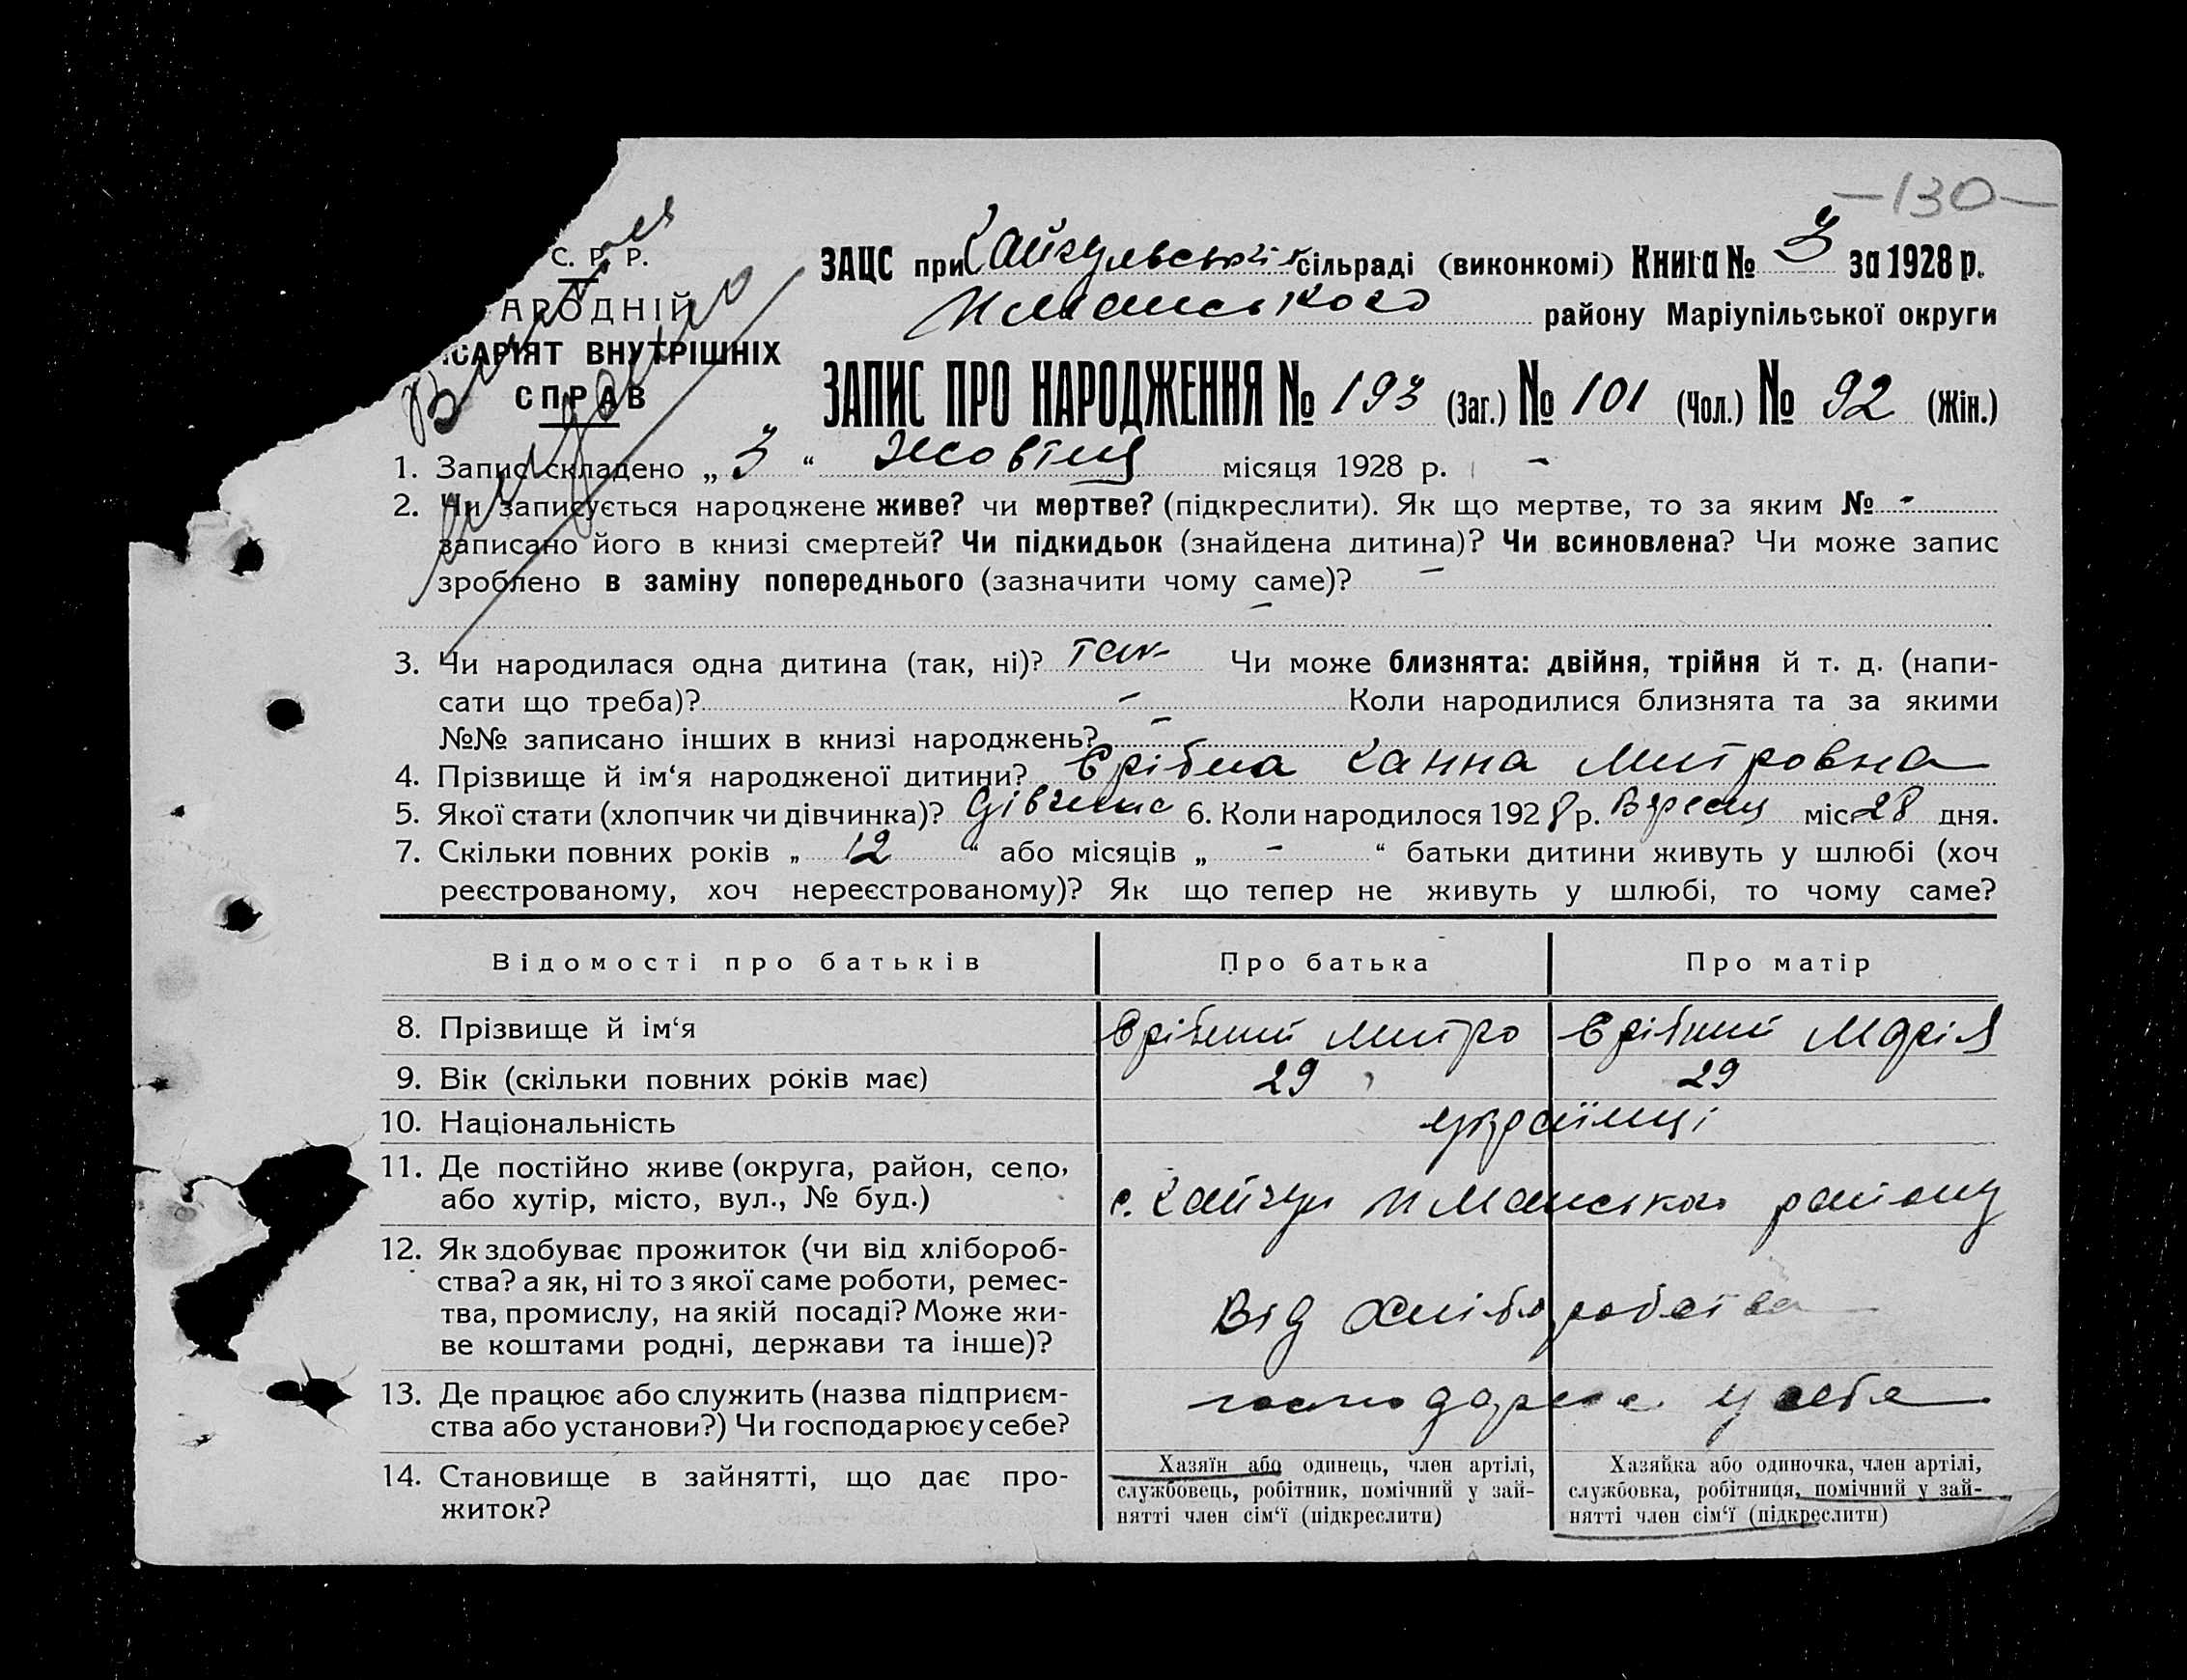 —130—
С. Р. Р.
АРОДНІЙ
ІСАРІЯТ ВНУТРІШНІХ
СПРАВ
ЗАЦС при Гайчульській сільраді (виконкомі) Книга № 3 за 1928 р.
району Маріупільської округи
ЗАПИС ПРО НАРОДЖЕННЯ № 193 (Заг.) № 101 (Чол.) № 92 (Жін.)
1. Запис складено „ 3 “ Жовтня місяця 1928 р. -
2. Чи записується народжене живе? чи мертве? (підкреслити). Як що мертве, то за яким № -
записано його в книзі смертей? Чи підкидьок (знайдена дитина)? Чи всиновлена? Чи може запис
зроблено в заміну попереднього (зазначити чому саме)? -
-
3. Чи народилася одна дитина (так, ні)? так Чи може близнята: двійня, трійня й т. д. (напи-
сати що треба)? - Коли народилися близнята та за якими
№№ записано інших в книзі народжень? -
4. Прізвище й ім‘я народженої дитини? Єрібна Ганна Митровна
5. Якої стати (хлопчик чи дівчинка)? дівчина 6. Коли народилося 1928 р. Вересня міс 28 дня.
7. Скільки повних років „ 12 “ або місяців „ - “ батьки дитини живуть у шлюбі (хоч
реєстрованому, хоч нереєстрованому)? Як що тепер не живуть у шлюбі, то чому саме?
Відомості про батьків Про батька Про матір
8. Прізвище й ім‘я Єрібний Митро Єрібний Марія
9. Вік (скільки повних років має) 29 29
10. Національність українці
11. Де постійно живе (округа, район, село,
або хутір, місто, вул., № буд.) с. Гайчул району
12. Як здобуває прожиток (чи від хлібороб-
ства? а як, ні то з якої саме роботи, ремес-
тва, промислу, на якій посаді? Може жи-
ве коштами родні, держави та інше)? Від хліборобства
13. Де працює або служить (назва підприєм-
ства або установи?) Чи господарює у себе? у себя
14. Становище в зайнятті, що дає про-
житок?
Хазяїн або одинець, член артілі,
службовець, робітник, помічний у зай-
нятті член сім‘ї (підкреслити)
Хазяйка або одиночка, член артілі,
службовка, робітниця, помічний у зай-
нятті член сім‘ї (підкреслити)